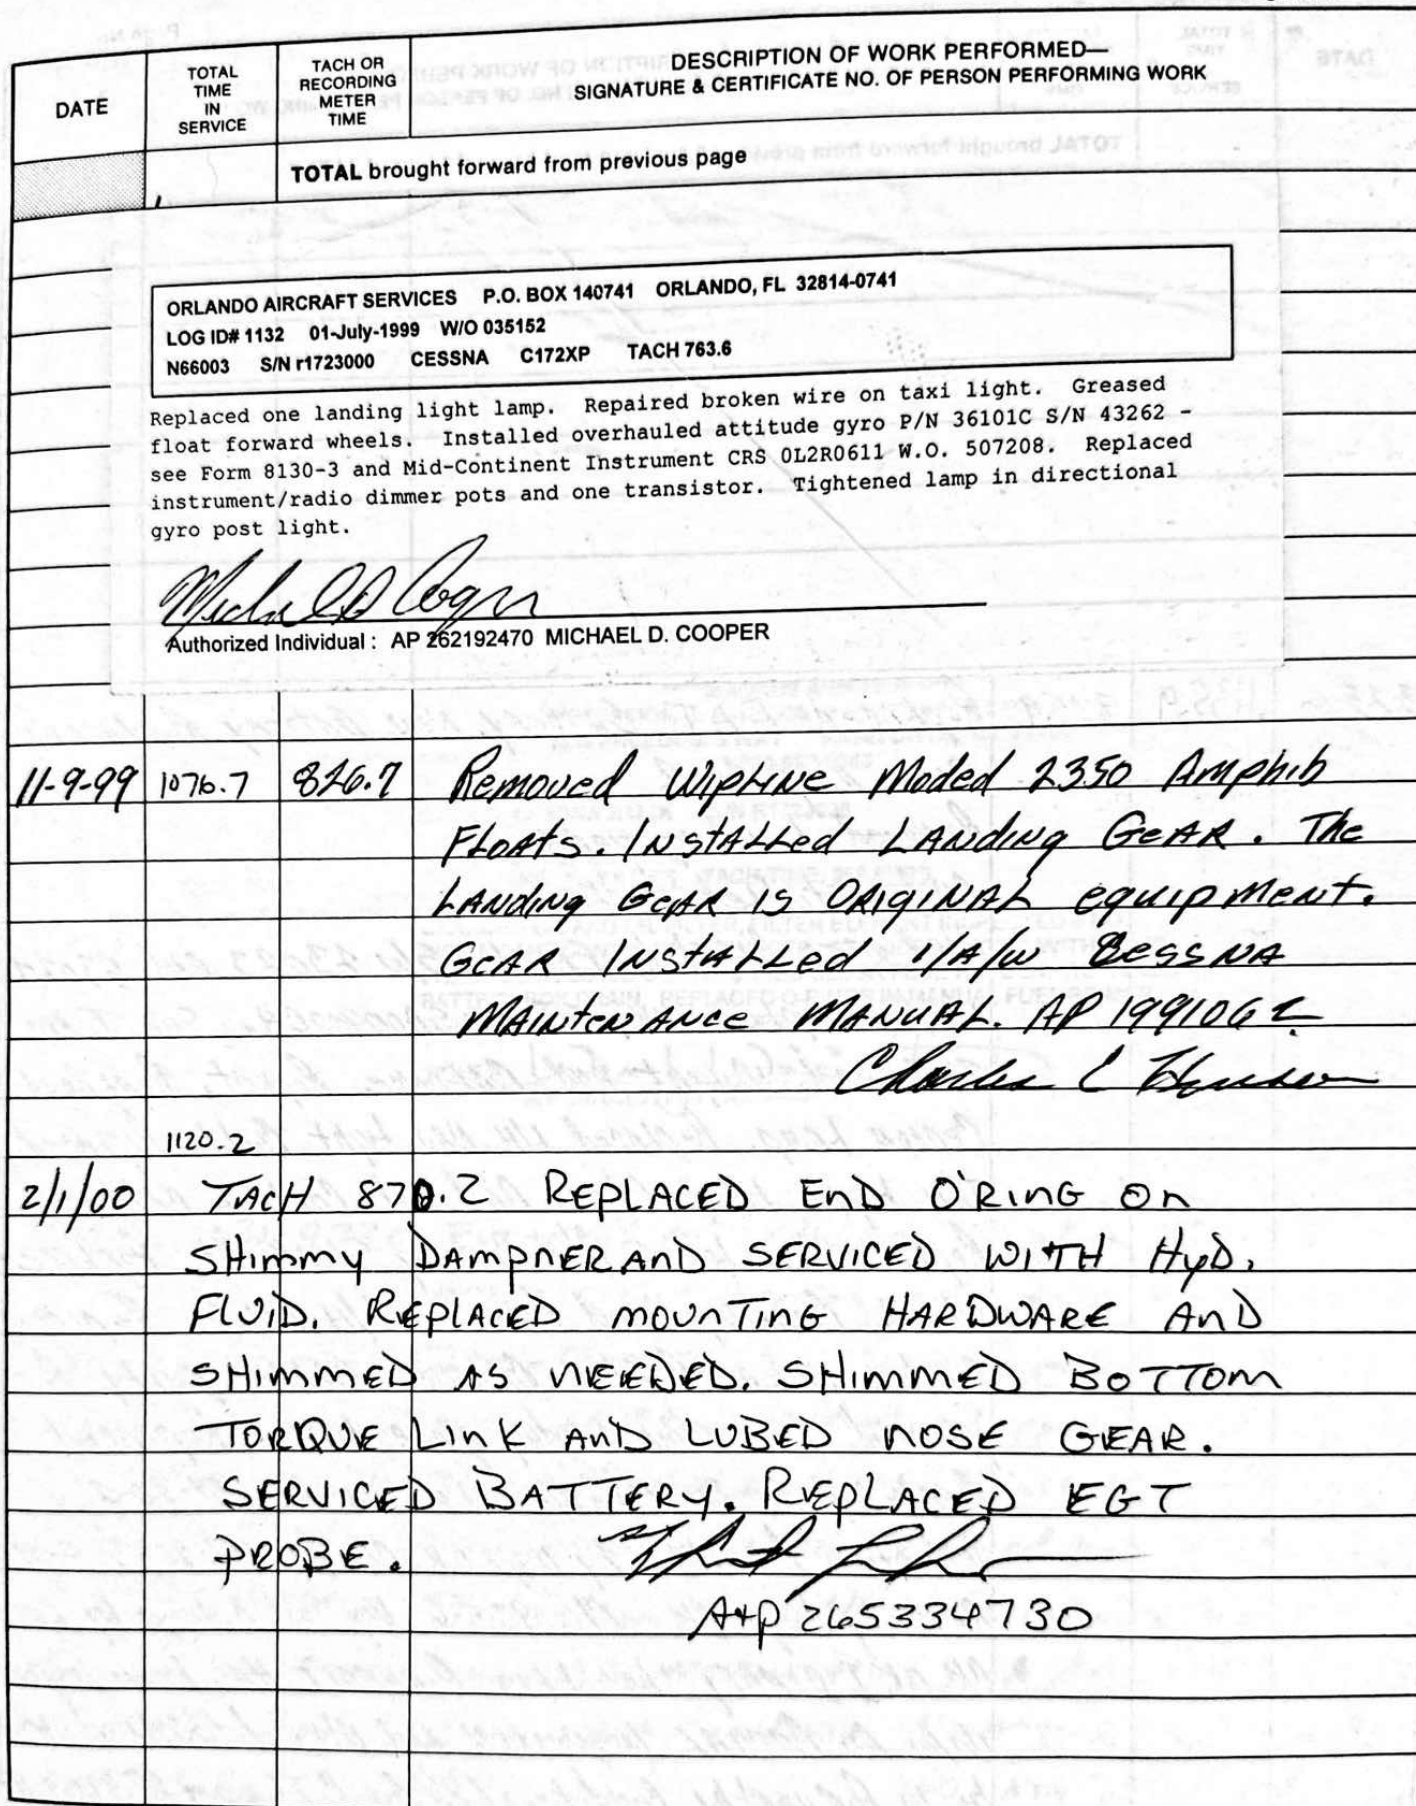 DATE
TOTAL
TIME
IN
SERVICE
TACH OR
RECORDING
METER
TIME
DESCRIPTION OF WORK PERFORMED—
SIGNATURE & CERTIFICATE NO. OF PERSON PERFORMING WORK
TOTAL brought forward from previous page
ORLANDO AIRCRAFT SERVICES P.O. BOX 140741 ORLANDO, FL 32814-0741
LOG ID# 1132 01-July-1999 W/O 035152
N66003 S/N r1723000 CESSNA C172XP TACH 763.6
Replaced one landing light lamp. Repaired broken wire on taxi light. Greased
float forward wheels. Installed overhauled attitude gyro P/N 36101C S/N 43262 -
see Form 8130-3 and Mid-Continent Instrument CRS 0L2R0611 W.O. 507208. Replaced
instrument/radio dimmer pots and one transistor. Tightened lamp in directional
gyro post light.
Authorized Individual : AP 262192470 MICHAEL D. COOPER
11-9-99 1076.7 826.7 Removed WipLiNe Moded 2350 Amphib
FLoAts. INstALLed LANdiNg GeAR. The
LANdiNg GeAR is ORigiNAL equipMeNt.
GeAR INstALLed I/A/W CessNA
MAiNteNANce MANuAL. AP 1991062
Charles C
1120.2
2/1/00 TACH 870.2 REPLACED END O'RING ON
SHIMMY DAMPNER AND SERVICED WITH HYD.
FLUID. REPLACED MOUNTING HARDWARE AND
SHIMMED AS NEEDED. SHIMMED BOTTOM
TORQUE LINK AND LUBED NOSE GEAR.
SERVICED BATTERY. REPLACED EGT
PROBE.
A+P 265334730